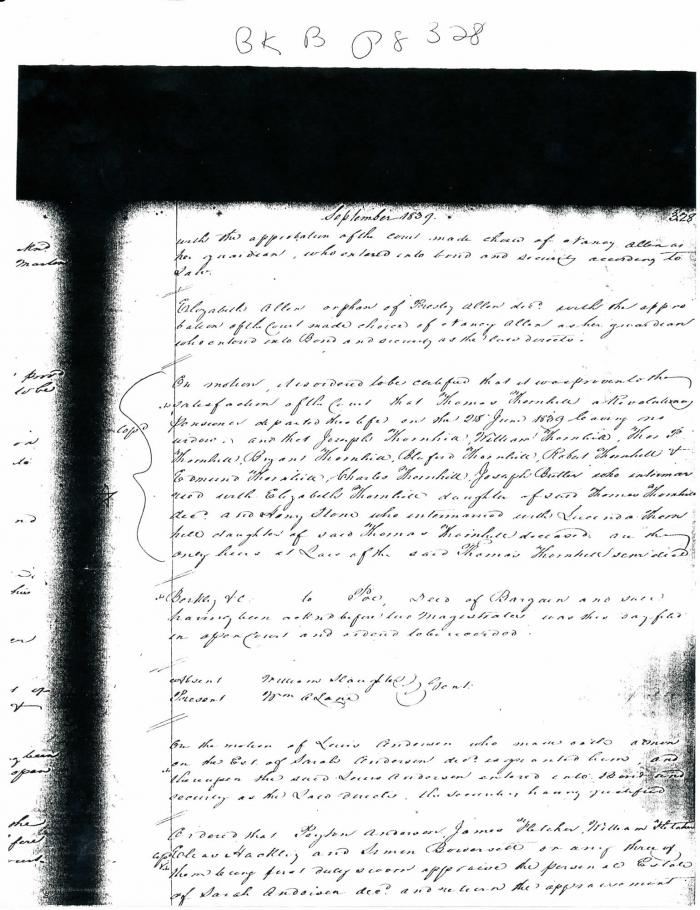 BK B Pg 328
September 1839.
328
with the approbation of the court made choice of Nancy Allen as
her guardian, who entered into bond and security according to
Law.
Elizabeth Allen orphan of Presley Allen decd. with the appro
bation of the Court made choice of Nancy Allen as her guardian
who entered into Bond and security as the law directs.
On motion, it is ordered to be certified that it was proven to the
satisfaction of the Court that Thomas Thornhill a Revolutionary
Pensioner departed this life on the 28 June 1839 leaving no
widow; and that Joseph Thornhill, William Thornhill, Thos
Thornhill, Bryant Thornhill, Thornhill, Robert Thornhill &
Edmund Thornhill, Charles Thornhill, Joseph Butler who intermar
ried with Elizabeth Thornhill daughter of said Thomas Thornhill
decd. and Stone who intermarried with Lucinda Thorn
hill daughter of said Thomas Thornhill deceased are the
only heirs at Law of the said Thomas Thornhill
copd
&c. to Poe, Deed of Bargain and sale
having been acknd before two Magistrates was this day filed
in open Court and ordered to be recorded.
Absent William Slaughter
Present Wm A Lane Gent.
On the motion of Lewis Anderson who made oath
on the Est. of Sarah Anderson decd. is granted him and
thereupon the said Lewis Anderson entered into Bond and
security as the Law directs, the security having justified
Ordered that Peyton Anderson, James Fletcher, William Fletcher
Elias Hackley and Simon Bowersett or any three of
them being first duly sworn appraise the personal Estate
of Sarah Anderson decd. and return the appraisement